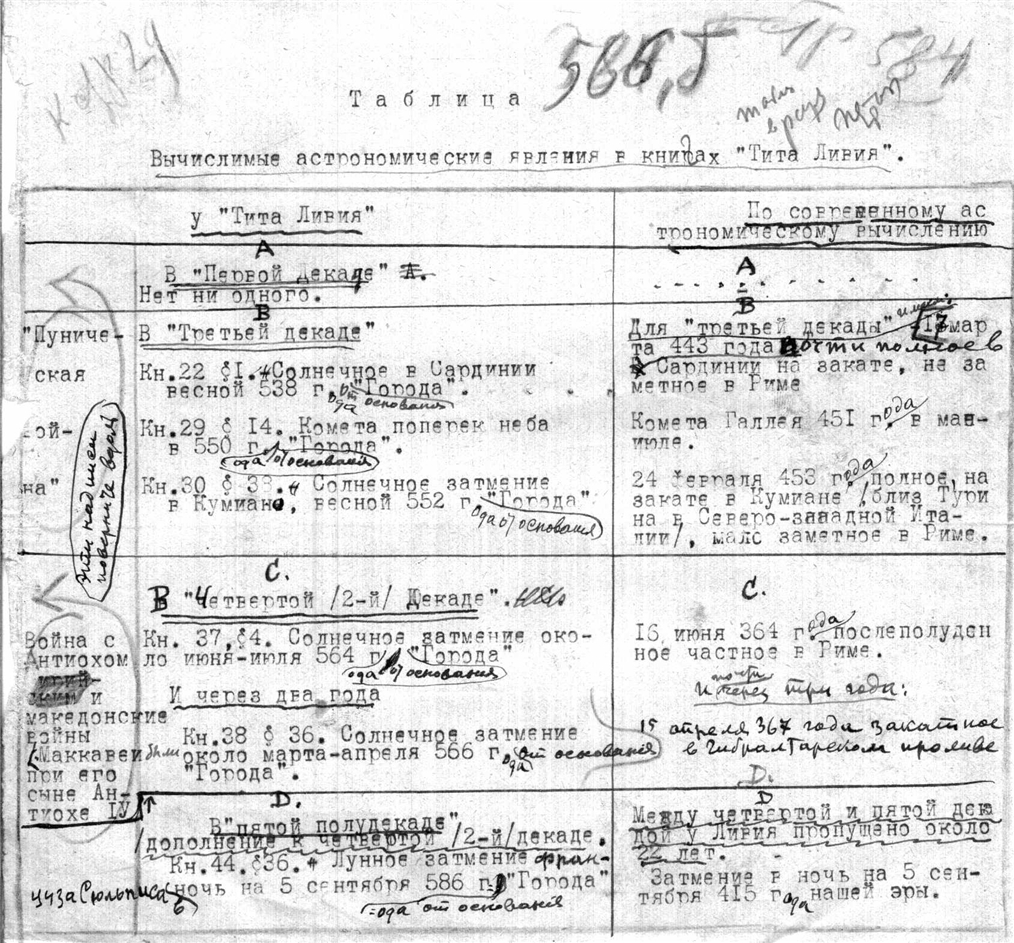 588,5
584
Таблица
Вычислимые астрономические явления в книгах "Тита Ливия".
у "Тита Ливия"
По современному ас
трономическому вычислению
А
В "Первой Декаде"
Нет ни одного.
А
В
"Пуниче-
ская
вой-
на"
эти надписи
В "Третьей декаде"
Кн.22 §1. Солнечное в Сардинии
весной 538 г. "Города".
ода от основания
Кн.29 § 14. Комета поперек неба
в 550 г. "Города".
ода от основания
Кн.30 § 38. Солнечное затмение
в Кумиане, весной 552 г. "Города"
ода от основания
В
Для "третьей декады" 13 мар
та 443 года почти полное в
Сардинии на закате, не за
метное в Риме
Комета Галлея 451 года в мае-
июле.
24 февраля 453 года, полное на
закате в Кумиане /близ Тури
на в Северо-западной Ита-
лии/, мало заметное в Риме.
С.
В "Четвертой /2-й/ Декаде".
Война с
Антиохом
и
македонские
войны
/Маккавеи были
при его
сыне Ан-
тиохе IУ
Кн. 37, §4. Солнечное затмение око-
ло июня-июля 564 г. "Города"
ода от основания
И через два года
Кн.38 § 36. Солнечное затмение
около марта-апреля 566 г. ода от основания
"Города".
С.
16 июня 364 года послеполуден
ное частное в Риме.
и почти через три года:
15 апреля 367 года закатное
в Гибралтарском проливе
D.
В "пятой полудекаде"
/дополнение к четвертой /2-й/ декаде.
Кн.44.§36. Лунное затмение
ночь на 5 сентября 586 г. "Города"
ода от основания
D.
D
Между четвертой и пятой дека
дой у Ливия пропущено около
22 лет.
Затмение в ночь на 5 сен-
тября 415 года нашей эры.